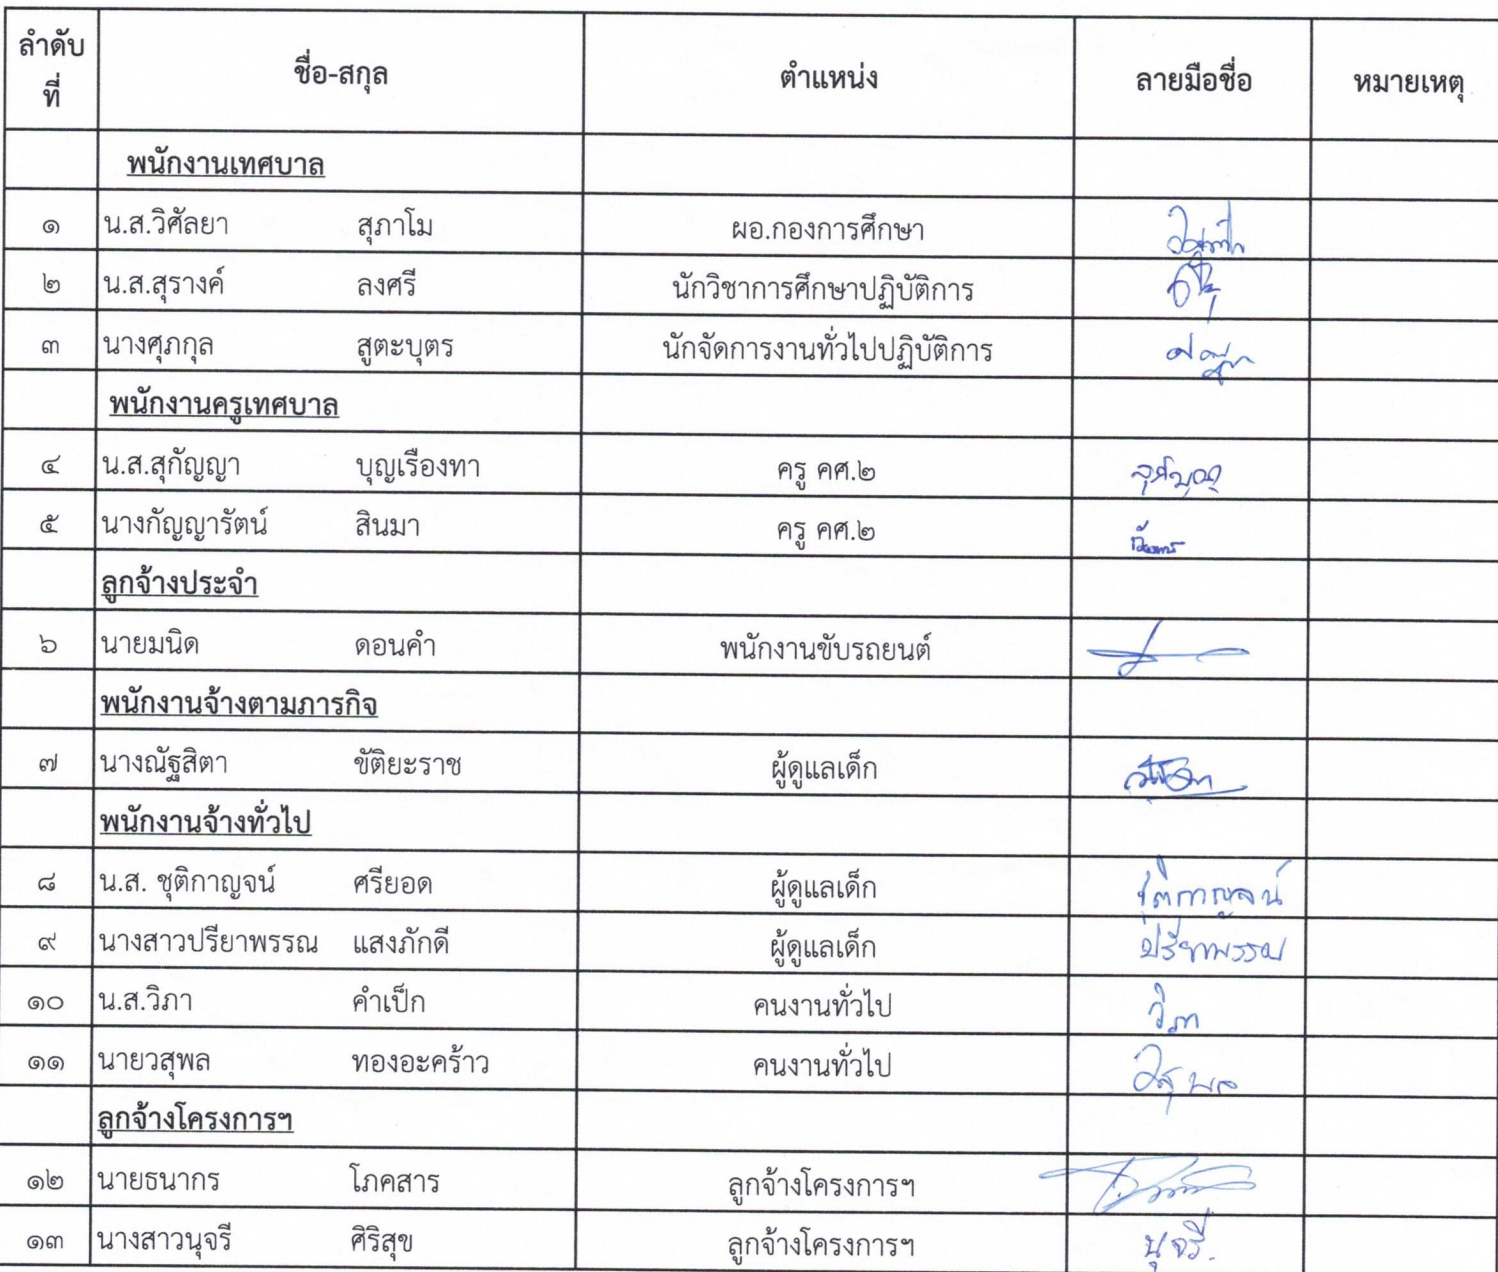 ลำดับที่ ชื่อ-สกุล ตำแหน่ง ลายมือชื่อ หมายเหตุ
พนักงานเทศบาล
๑ น.ส.วิศัลยา สุภาโม ผอ.กองการศึกษา
๒ น.ส.สุรางค์ ลงศรี นักวิชาการศึกษาปฏิบัติการ
๓ นางศุภกุล สูตะบุตร นักจัดการงานทั่วไปปฏิบัติการ
พนักงานครูเทศบาล
๔ น.ส.สุกัญญา บุญเรืองทา ครู คศ.๒
๕ นางกัญญารัตน์ สินมา ครู คศ.๒
ลูกจ้างประจำ
๖ นายมนิด ดอนคำ พนักงานขับรถยนต์
พนักงานจ้างตามภารกิจ
๗ นางณัฐสิตา ขัติยะราช ผู้ดูแลเด็ก
พนักงานจ้างทั่วไป
๘ น.ส. ชุติกาญจน์ ศรียอด ผู้ดูแลเด็ก ชุติกาญจน์
๙ นางสาวปรียาพรรณ แสงภักดี ผู้ดูแลเด็ก ปรียาพรรณ
๑๐ น.ส.วิภา คำเป็ก คนงานทั่วไป วิภา
๑๑ นายวสุพล ทองอะคร้าว คนงานทั่วไป วสุพล
ลูกจ้างโครงการฯ
๑๒ นายธนากร โภคสาร ลูกจ้างโครงการฯ
๑๓ นางสาวนุจรี ศิริสุข ลูกจ้างโครงการฯ นุจรี.